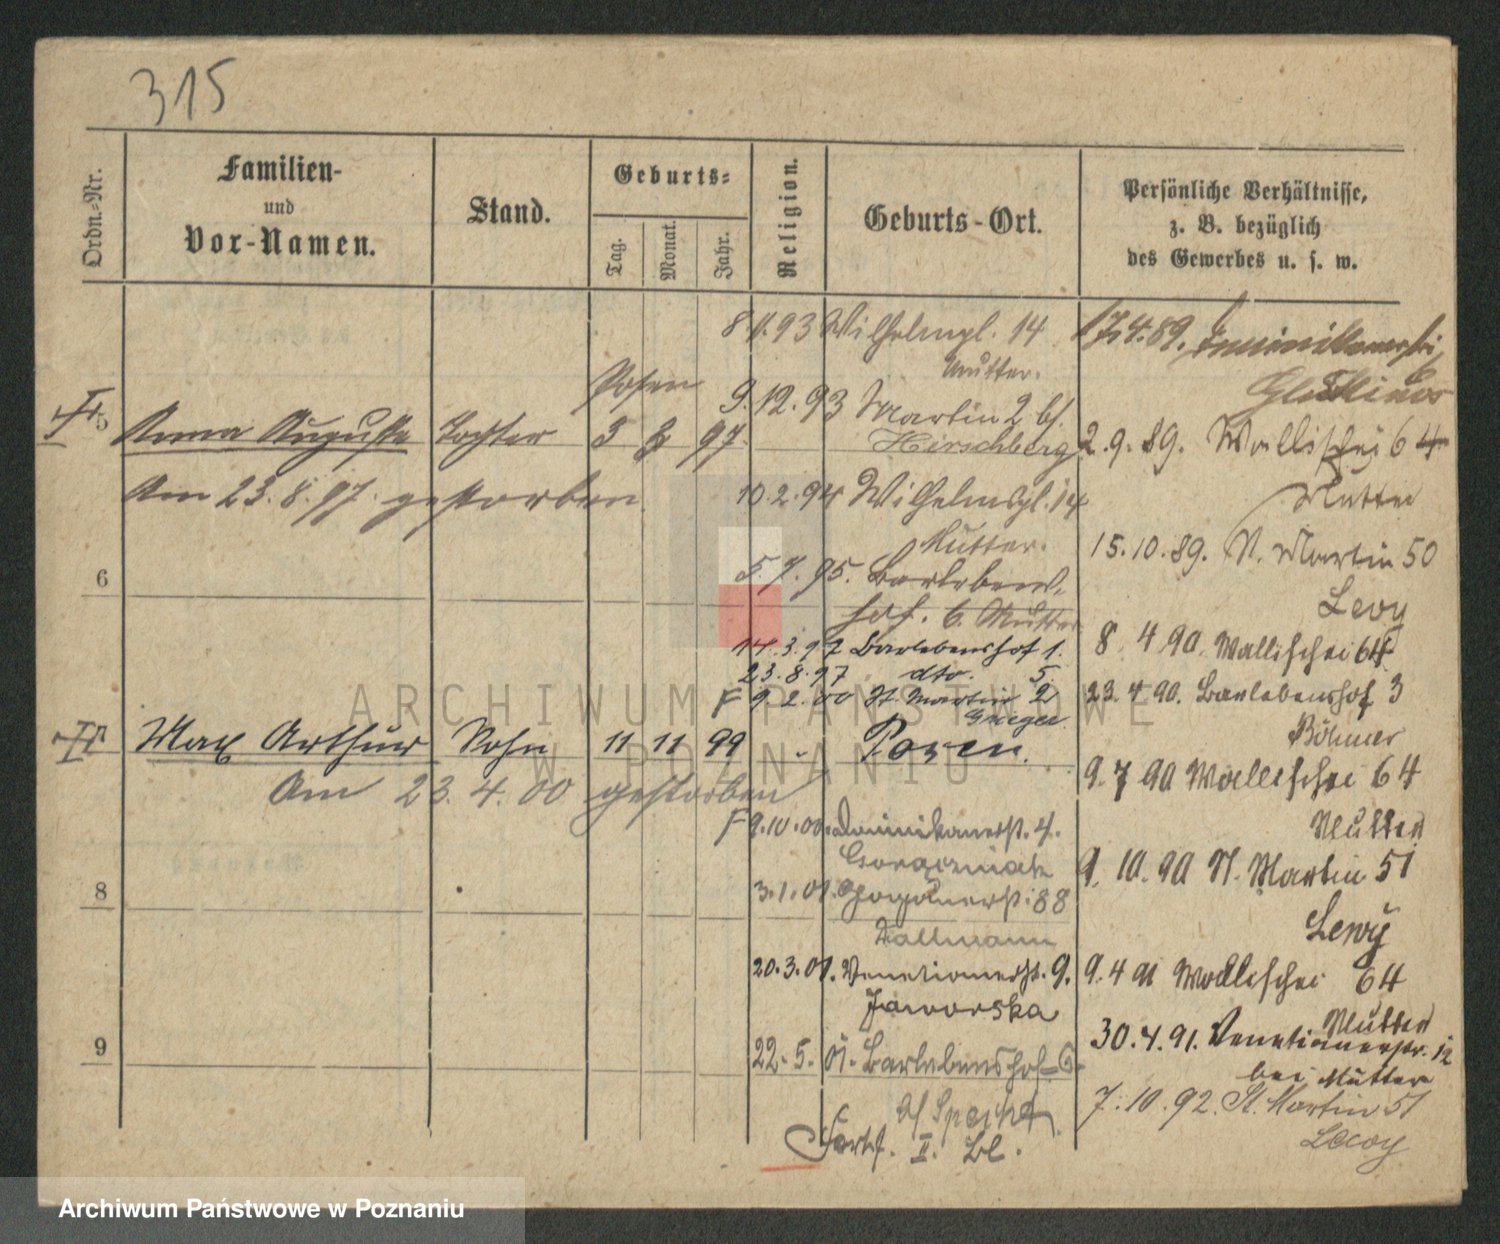 315
Ordn.-Nr.
Familien-
und
Vor-Namen.
Stand.
Geburts-
Tag.
Monat.
Jahr.
Religion.
Geburts-Ort.
Persönliche Verhältnisse,
z. B. bezüglich
des Gewerbes u. s. w.
8. 93 Wilhelmspl. 14
Mutter.
9.12.93 Martin 2 bf.
Hirschberg
Posen
5
Anna Auguste Tochter 5 97
Am 23.8.97 gestorben
10.2.94 Wilhelmspl. 14
Mutter.
5.7.95. Barlebens-
hof. 6. Mutter
6
14.3.97 Barlebenshof 1.
23.8.97 dto. 5.
F 9.2.00 St. Martin 2
Grieger
Max Arthur Sohn 11 11 99 Posen.
Am 23.4.00 gestorben
F 9.10.00. Dominikanerstr. 4.
3.1.01. 88
8
Tallmann
20.3.01. Venetianerstr. 9.
Jaworska
22.5.01. Barlebenshof 6
9
b/ Specht
Fortf. II. Bl.
17.4.89.
2.9.89. Wallischei 64
Mutter
15.10.89. St. Martin 50
Levy
8.4.90. Wallischei 64
23.4.90. Barlebenshof 3
Böhmer
9.7.90 Wallischei 64
Mutter
9.10.90 St. Martin 51
Lewy
9.4.91 Wallischei 64
Mutter
30.4.91. Venetianerstr. 12
bei Mutter
7.10.92. St. Martin 51
Levy
ARCHIWUM PAŃSTWOWE
W POZNANIU
Archiwum Państwowe w Poznaniu